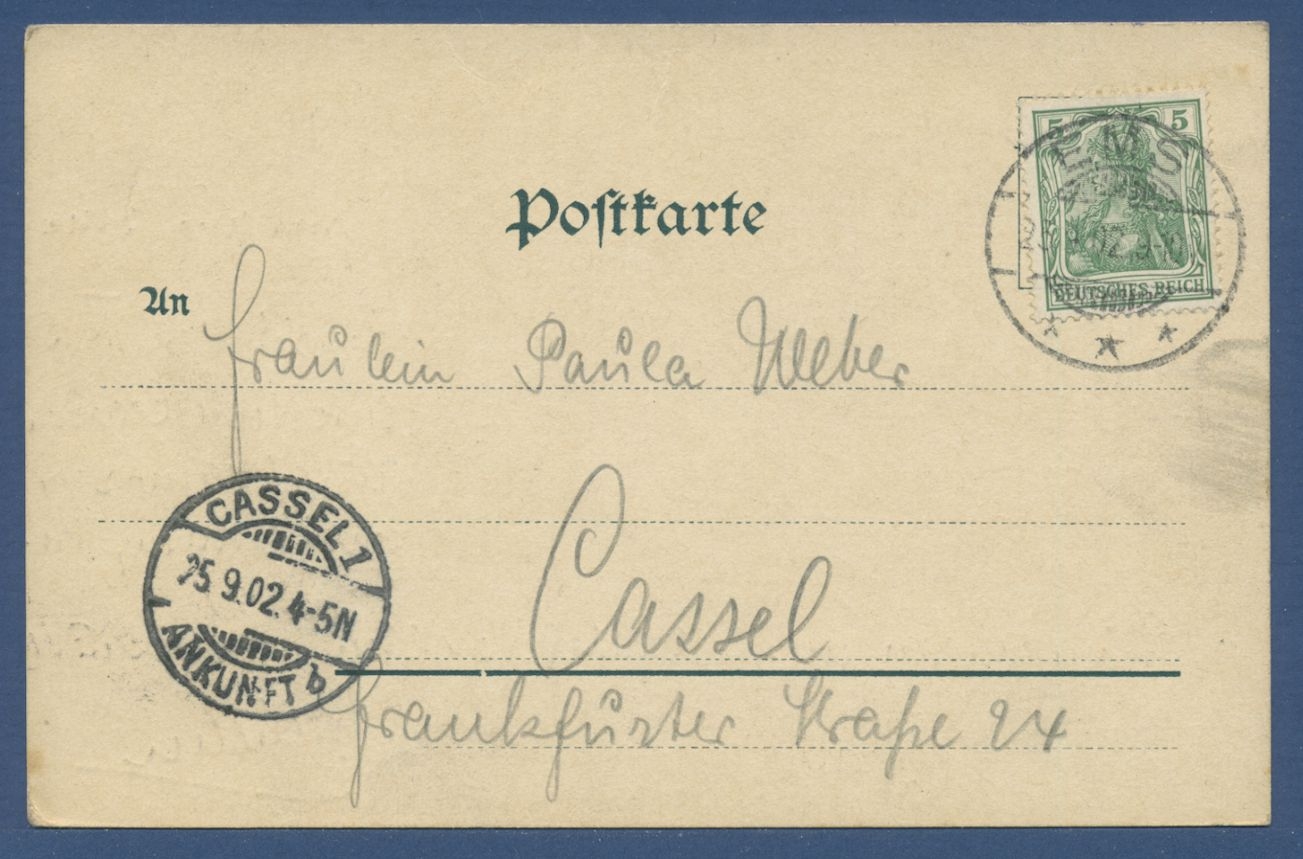 Postkarte
5 5
EMS
9.02. 9-10
DEUTSCHES REICH
An
Fräulein Paula Weber
CASSEL 1
25.9.02. 4-5N
ANKUNFT b
Cassel
Frankfurter Straße 24